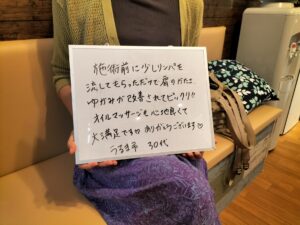 施術前に少しリンパを
流してもらっただけで肩のかたさ
ゆがみが改善されてビックリ!!
オイルマッサージも心地良くて
大満足です ありがとうございます♡
うるま市 30代